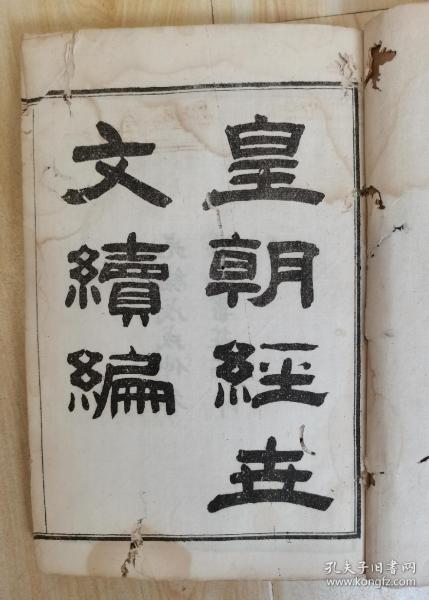 皇朝經世
文續編
孔夫子旧书网
www.kongfz.com